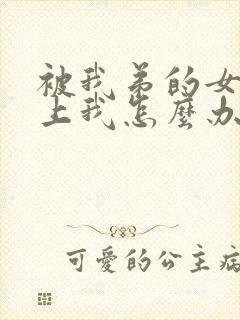 被我弟的女
上我怎麼办
可愛的公主病